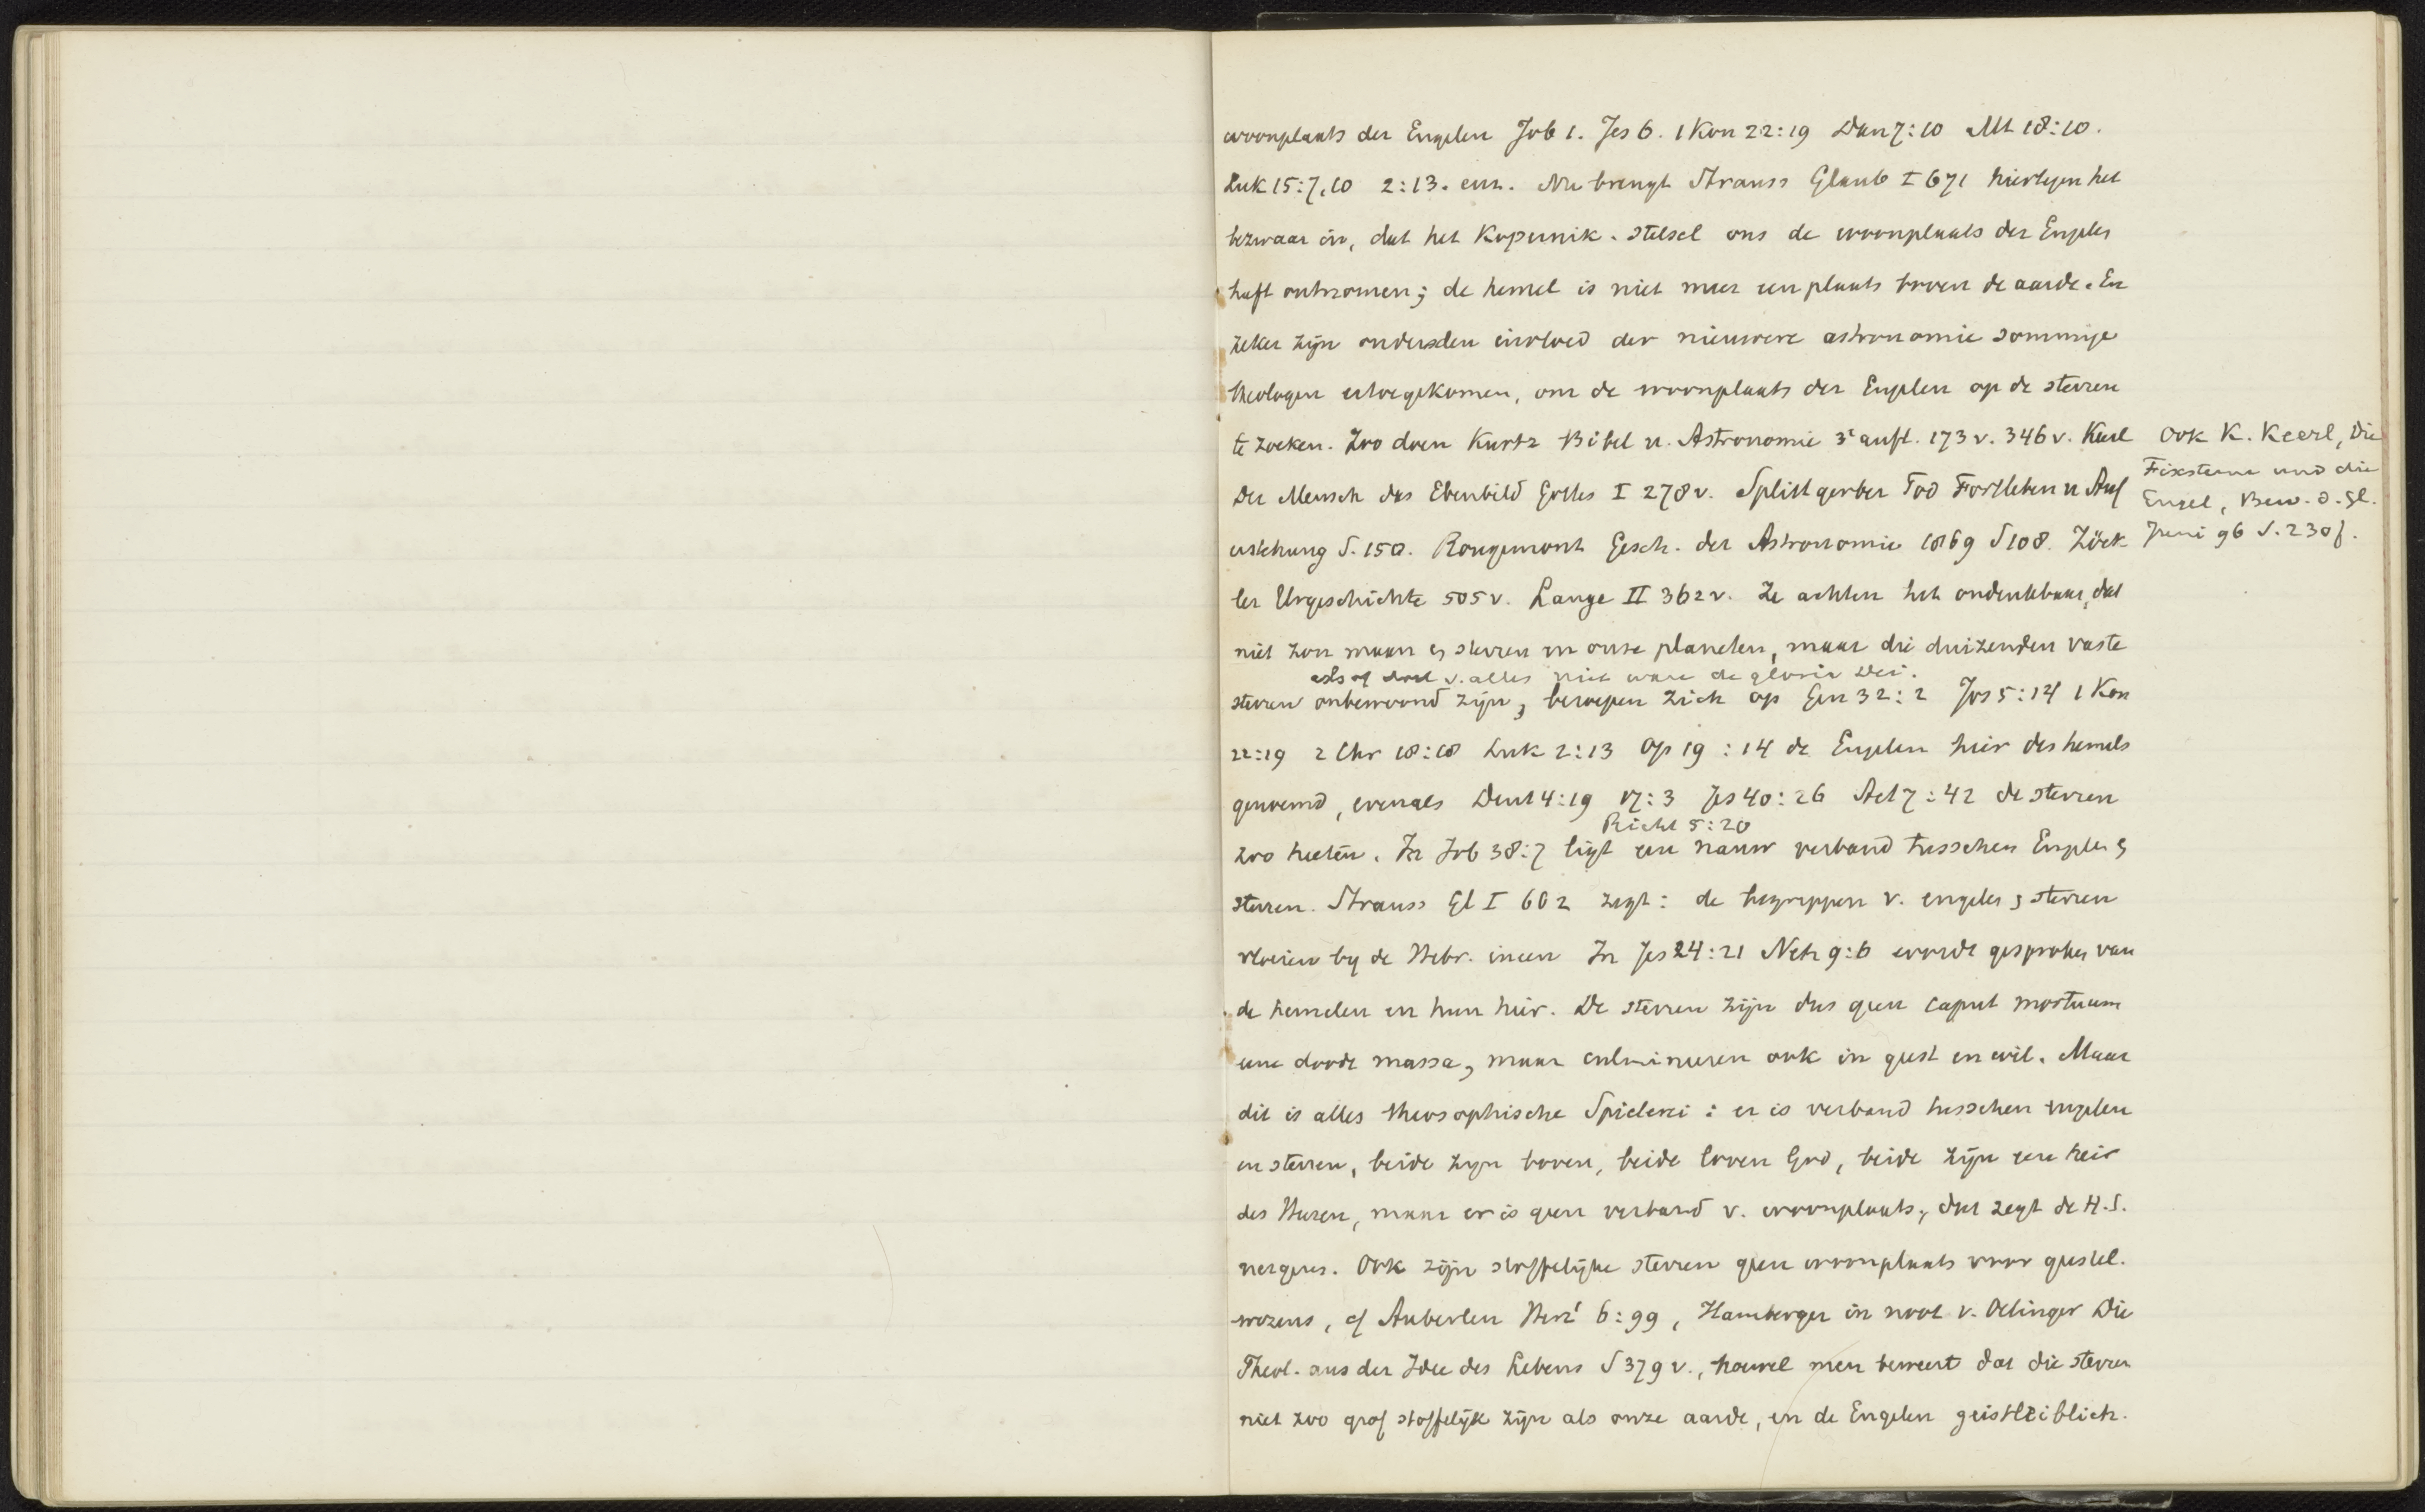 woonplaats der Engelen Job 1. Jes 6. 1 Kon 22:19 Dan 7:10 Mt 18:10.
Luk 15:7,10 2:13. enz. Nu brengt Strauss Glaub I 671 hiertegen het
bezwaar in, dat het Kopernik. stelsel ons de woonplaats der Engelen
heeft ontnomen; de hemel is niet meer een plaats boven de aarde. En
zeker zijn onder den invloed der nieuwere astronomie sommige
theologen ertoe gekomen, om de woonplaats der Engelen op de sterren
te zoeken. Zoo doen Kurtz Bibel u. Astronomie 3e aufl. 173 v. 346 v. Keerl
Der Mensch das Ebenbild Gottes I 278 v. Splittgerber Tod Fortleben u Auf
erstehung S. 150. Rougemont Gesch. der Astronomie 1869 S 108. Zöck
ler Urgeschichte 505 v. Lange II 362 v. Ze achten het ondenkbaar, dat
niet zon maan en sterren en onze planeten, maar die duizenden vaste
alsof doel v. alles niet ware de gloria Dei.
sterren onbewoond zijn, beroepen zich op Gen 32:2 Jos 5:14 1 Kon
22:19 2 Chr 18:18 Luk 2:13 Op 19:14 de Engelen heir des hemels
genoemd, evenals Deut 4:19 17:3 Jes 40:26 Act 7:42 de sterren
Richt 5:20
zoo heeten. In Job 38:7 ligt een nauw verband tusschen Engelen en
sterren. Strauss Gl I 662 zegt: de begrippen v. engelen en sterren
vloeien by de Hebr. ineen In Jes 24:21 Neh 9:6 wordt gesproken van
de hemelen en hun heir. De sterren zijn dus geen caput mortuum
eene doode massa, maar culmineeren ook in geest en wil. Maar
dit is alles theosophische Spielerei: er is verband tusschen engelen
en sterren, beide zijn boven, beide loven God, beide zijn een heir
des Heeren, maar er is geen verband v. woonplaats, dat zegt de H.S.
nergens. Ook zijn stoffelijke sterren geen woonplaats voor geestel.
wezens, cf Auberlen Herz¹ 6:99, Hamberger in noot v. Oetinger Die
Theol. aus der Idee des Lebens S 379 v., hoewel men beweert dat die sterren
niet zoo grof stoffelijk zijn als onze aarde, en de Engelen geistleiblich.
Ook K. Keerl, Die
Fixsterne und die
Engel, Bew. d. Gl.
Juni 96 S. 230 f.